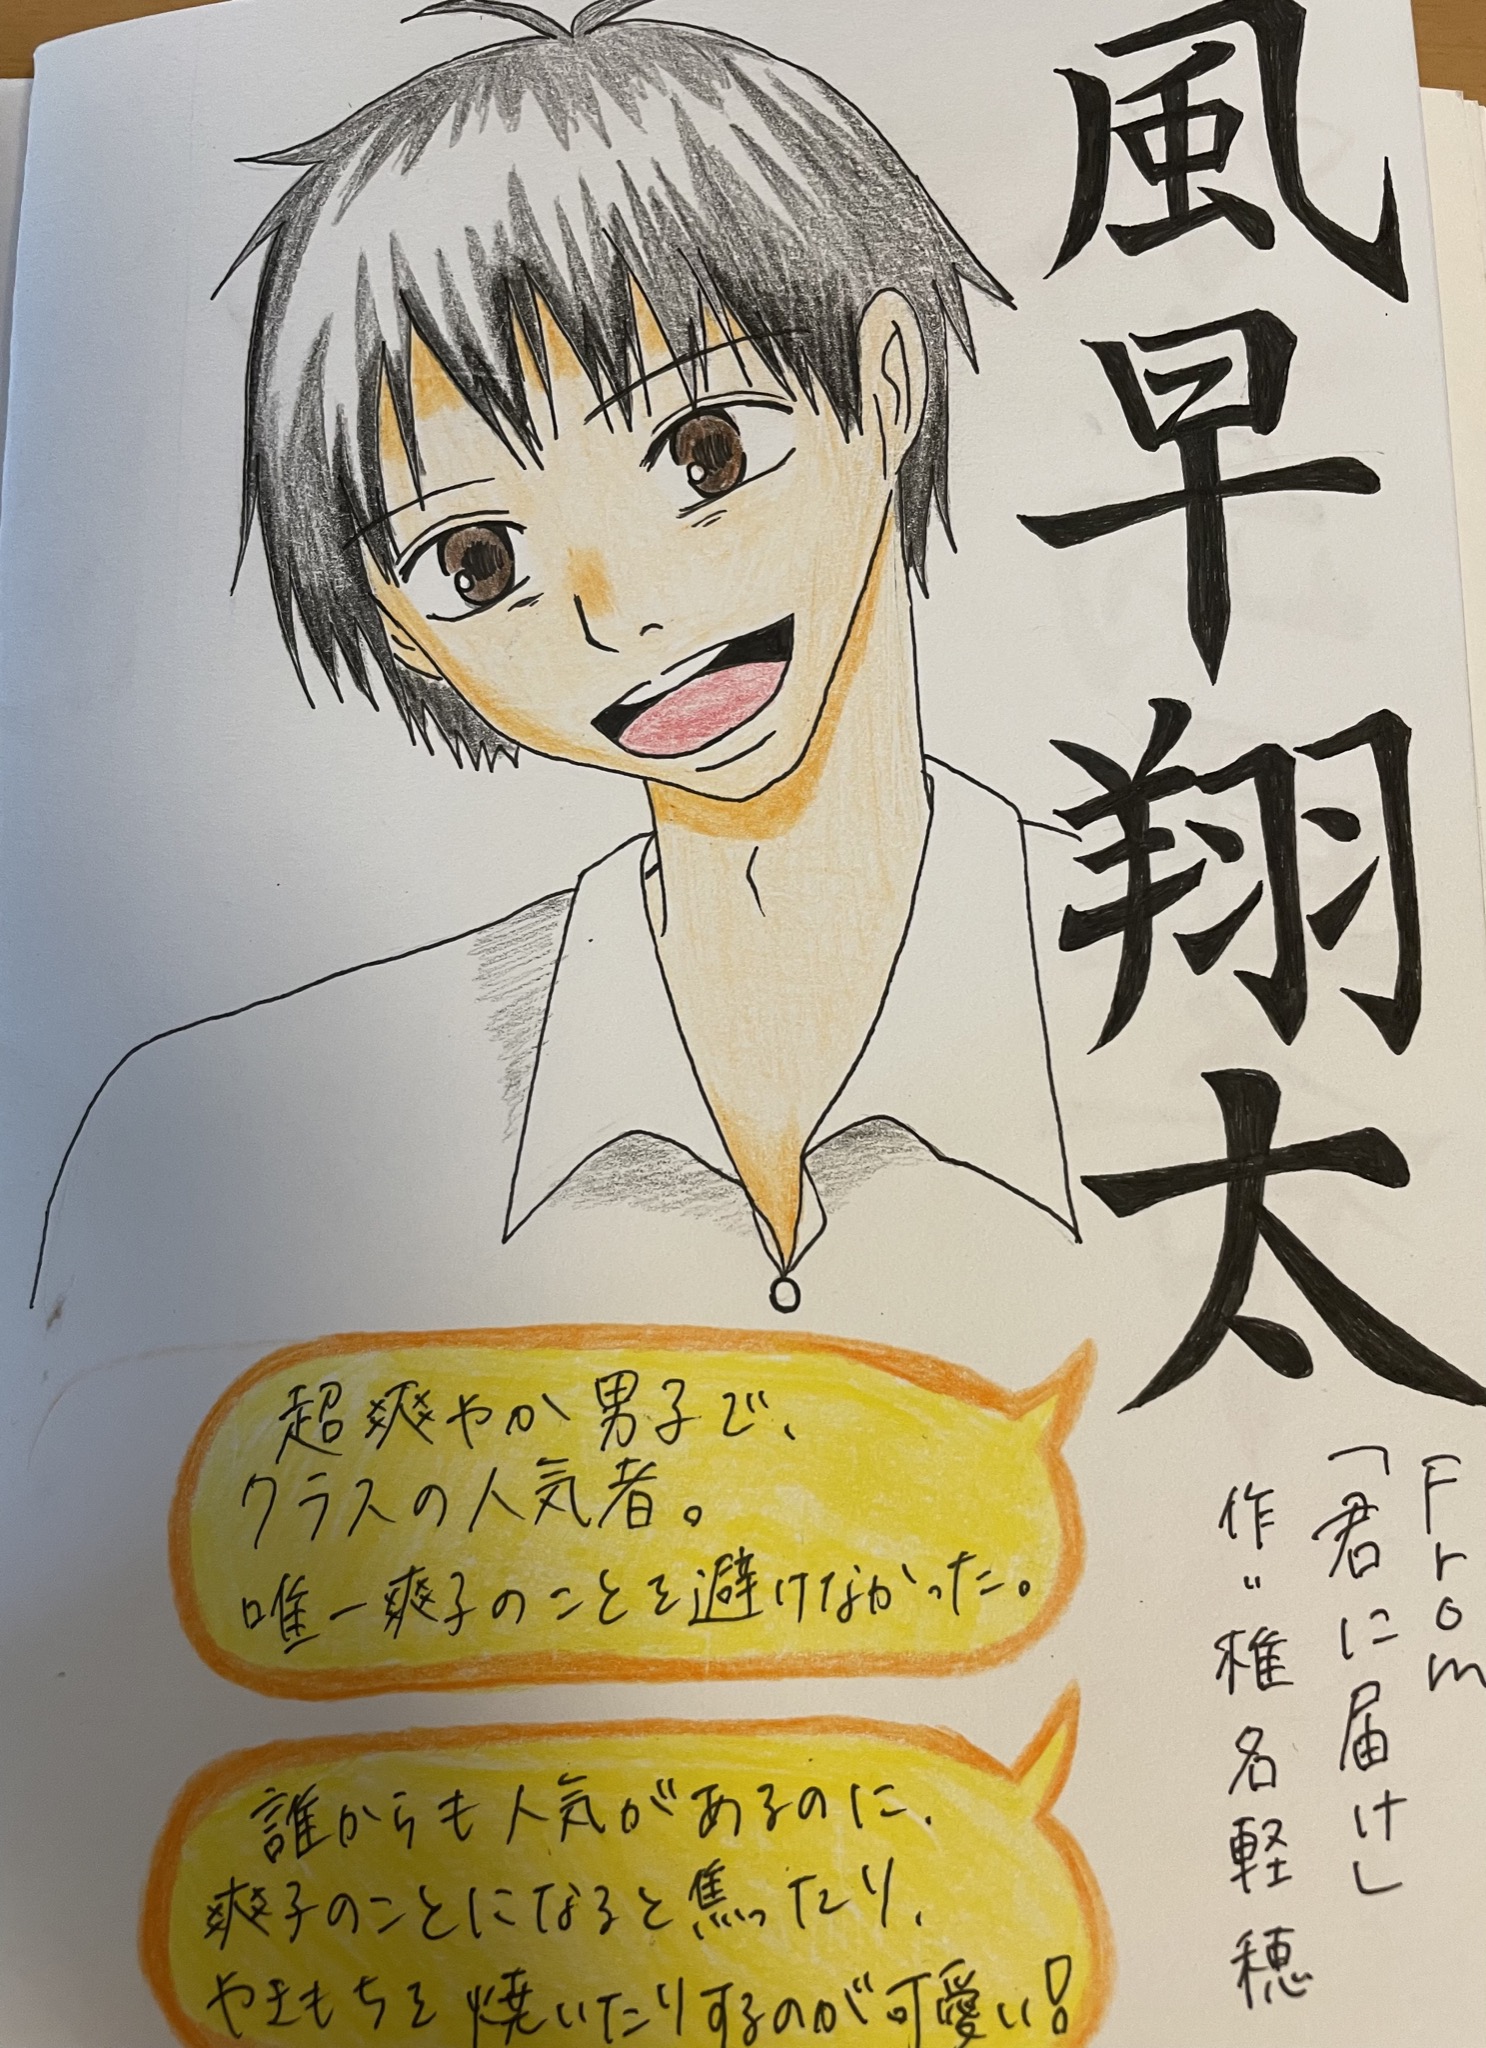 風早翔太
From
「君に届け」
作:椎名軽穂
超爽やか男子で、
クラスの人気者。
唯一爽子のことを避けなかった。
誰からも人気があるのに、
爽子のことになると焦ったり、
やきもちを焼いたりするのが可愛い!